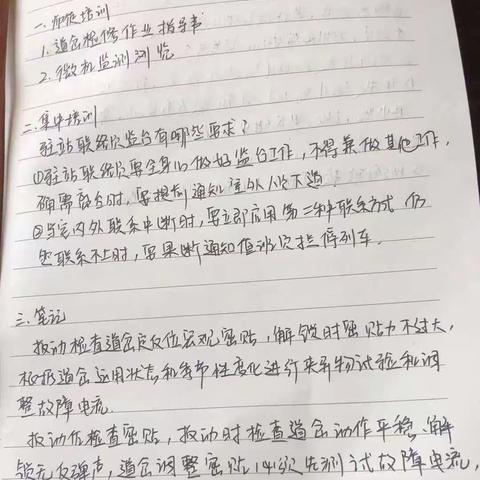 一、师徒培训
1. 道岔检修作业指导书
2. 微机监测浏览
二、集中培训
驻站联络员监台有哪些要求？
①驻站联络员要全身心做好监台工作，不得兼做其他工作，
确需离台时，要提前通知室外人员下道
②当室内外联系中断时，要立即启用第二种联系方式 仍
然联系不上时，要果断通知值班员拦停列车.
三、笔记
扳动检查道岔定反位宏观密贴，解锁时密贴力不过大，
根据道岔运用状态和季节性变化进行夹异物试验和调
整故障电流.
扳动前检查密贴，扳动时检查道岔动作平稳、解
锁无反弹声，道岔调整密贴 先测试故障电流，